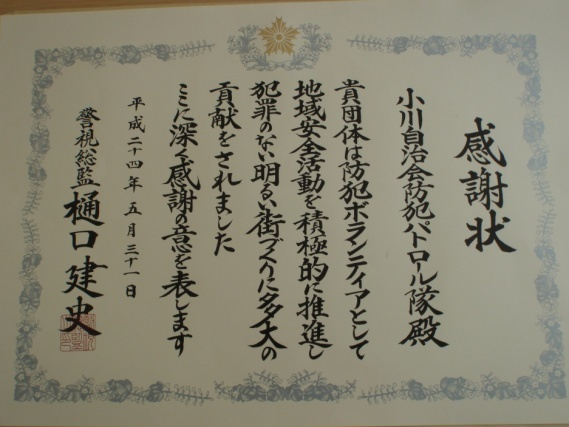 感謝状
小川自治会防犯パトロール隊殿
貴団体は防犯ボランティアとして
地域安全活動を積極的に推進し
犯罪のない明るい街づくりに多大の
貢献をされました
ここに深く感謝の意を表します
平成二十四年五月三十一日
警視総監 樋口建史